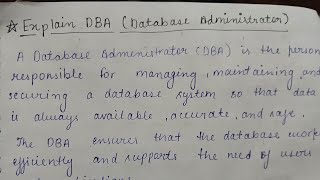 ☆ Explain DBA (Database Administrator)
A Database Administrator (DBA) is the person
responsible for managing, maintaining and
securing a database system so that data
is always available, accurate, and safe.
The DBA ensures that the database work
efficiently and supports the need of users